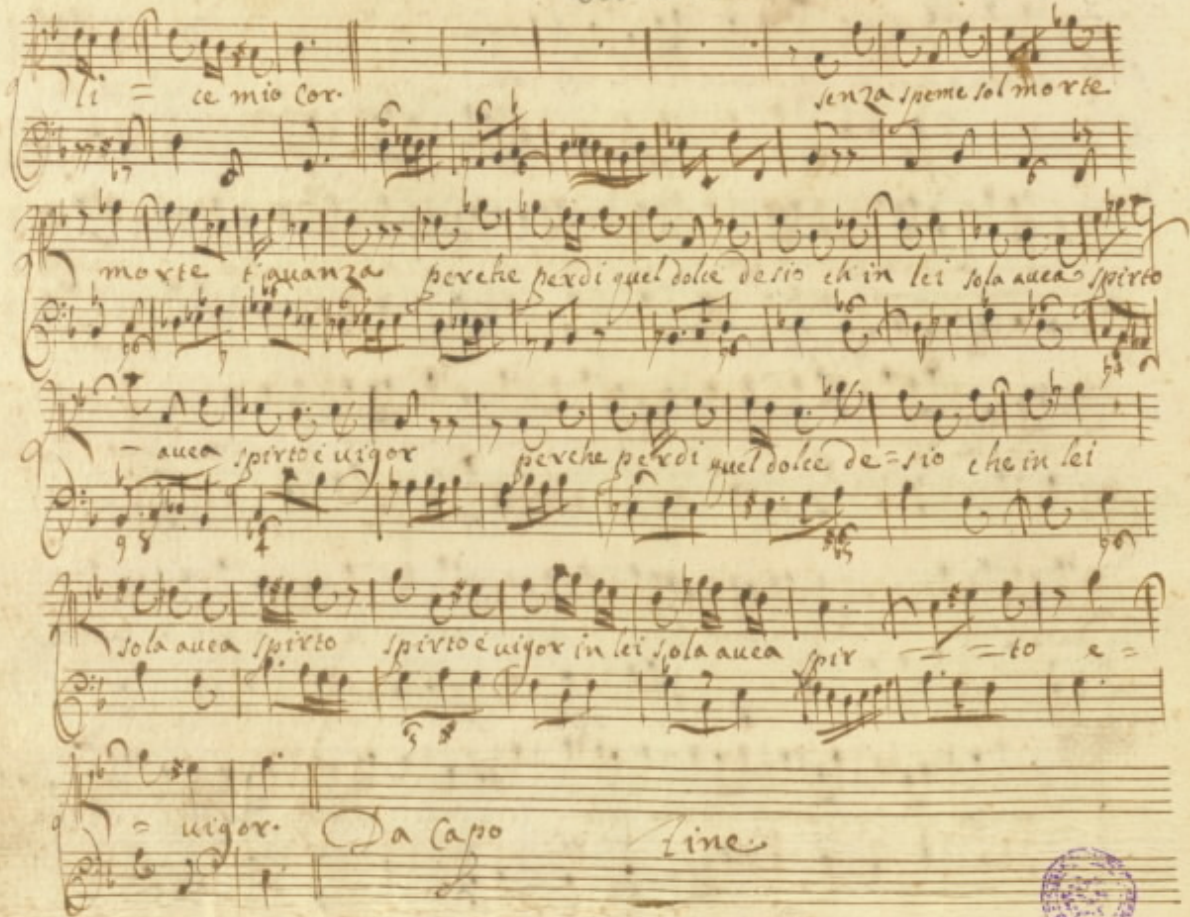 li = ce mio Cor. senza speme sol morte
morte t'auanza perche perdi quel dolce desio ch in lei sola auea spirto
- auea spirto è uigor perche perdi quel dolce de = sio che in lei
sola auea spirto spirto è uigor in lei sola auea spir - = to e =
= uigor. Da Capo Fine